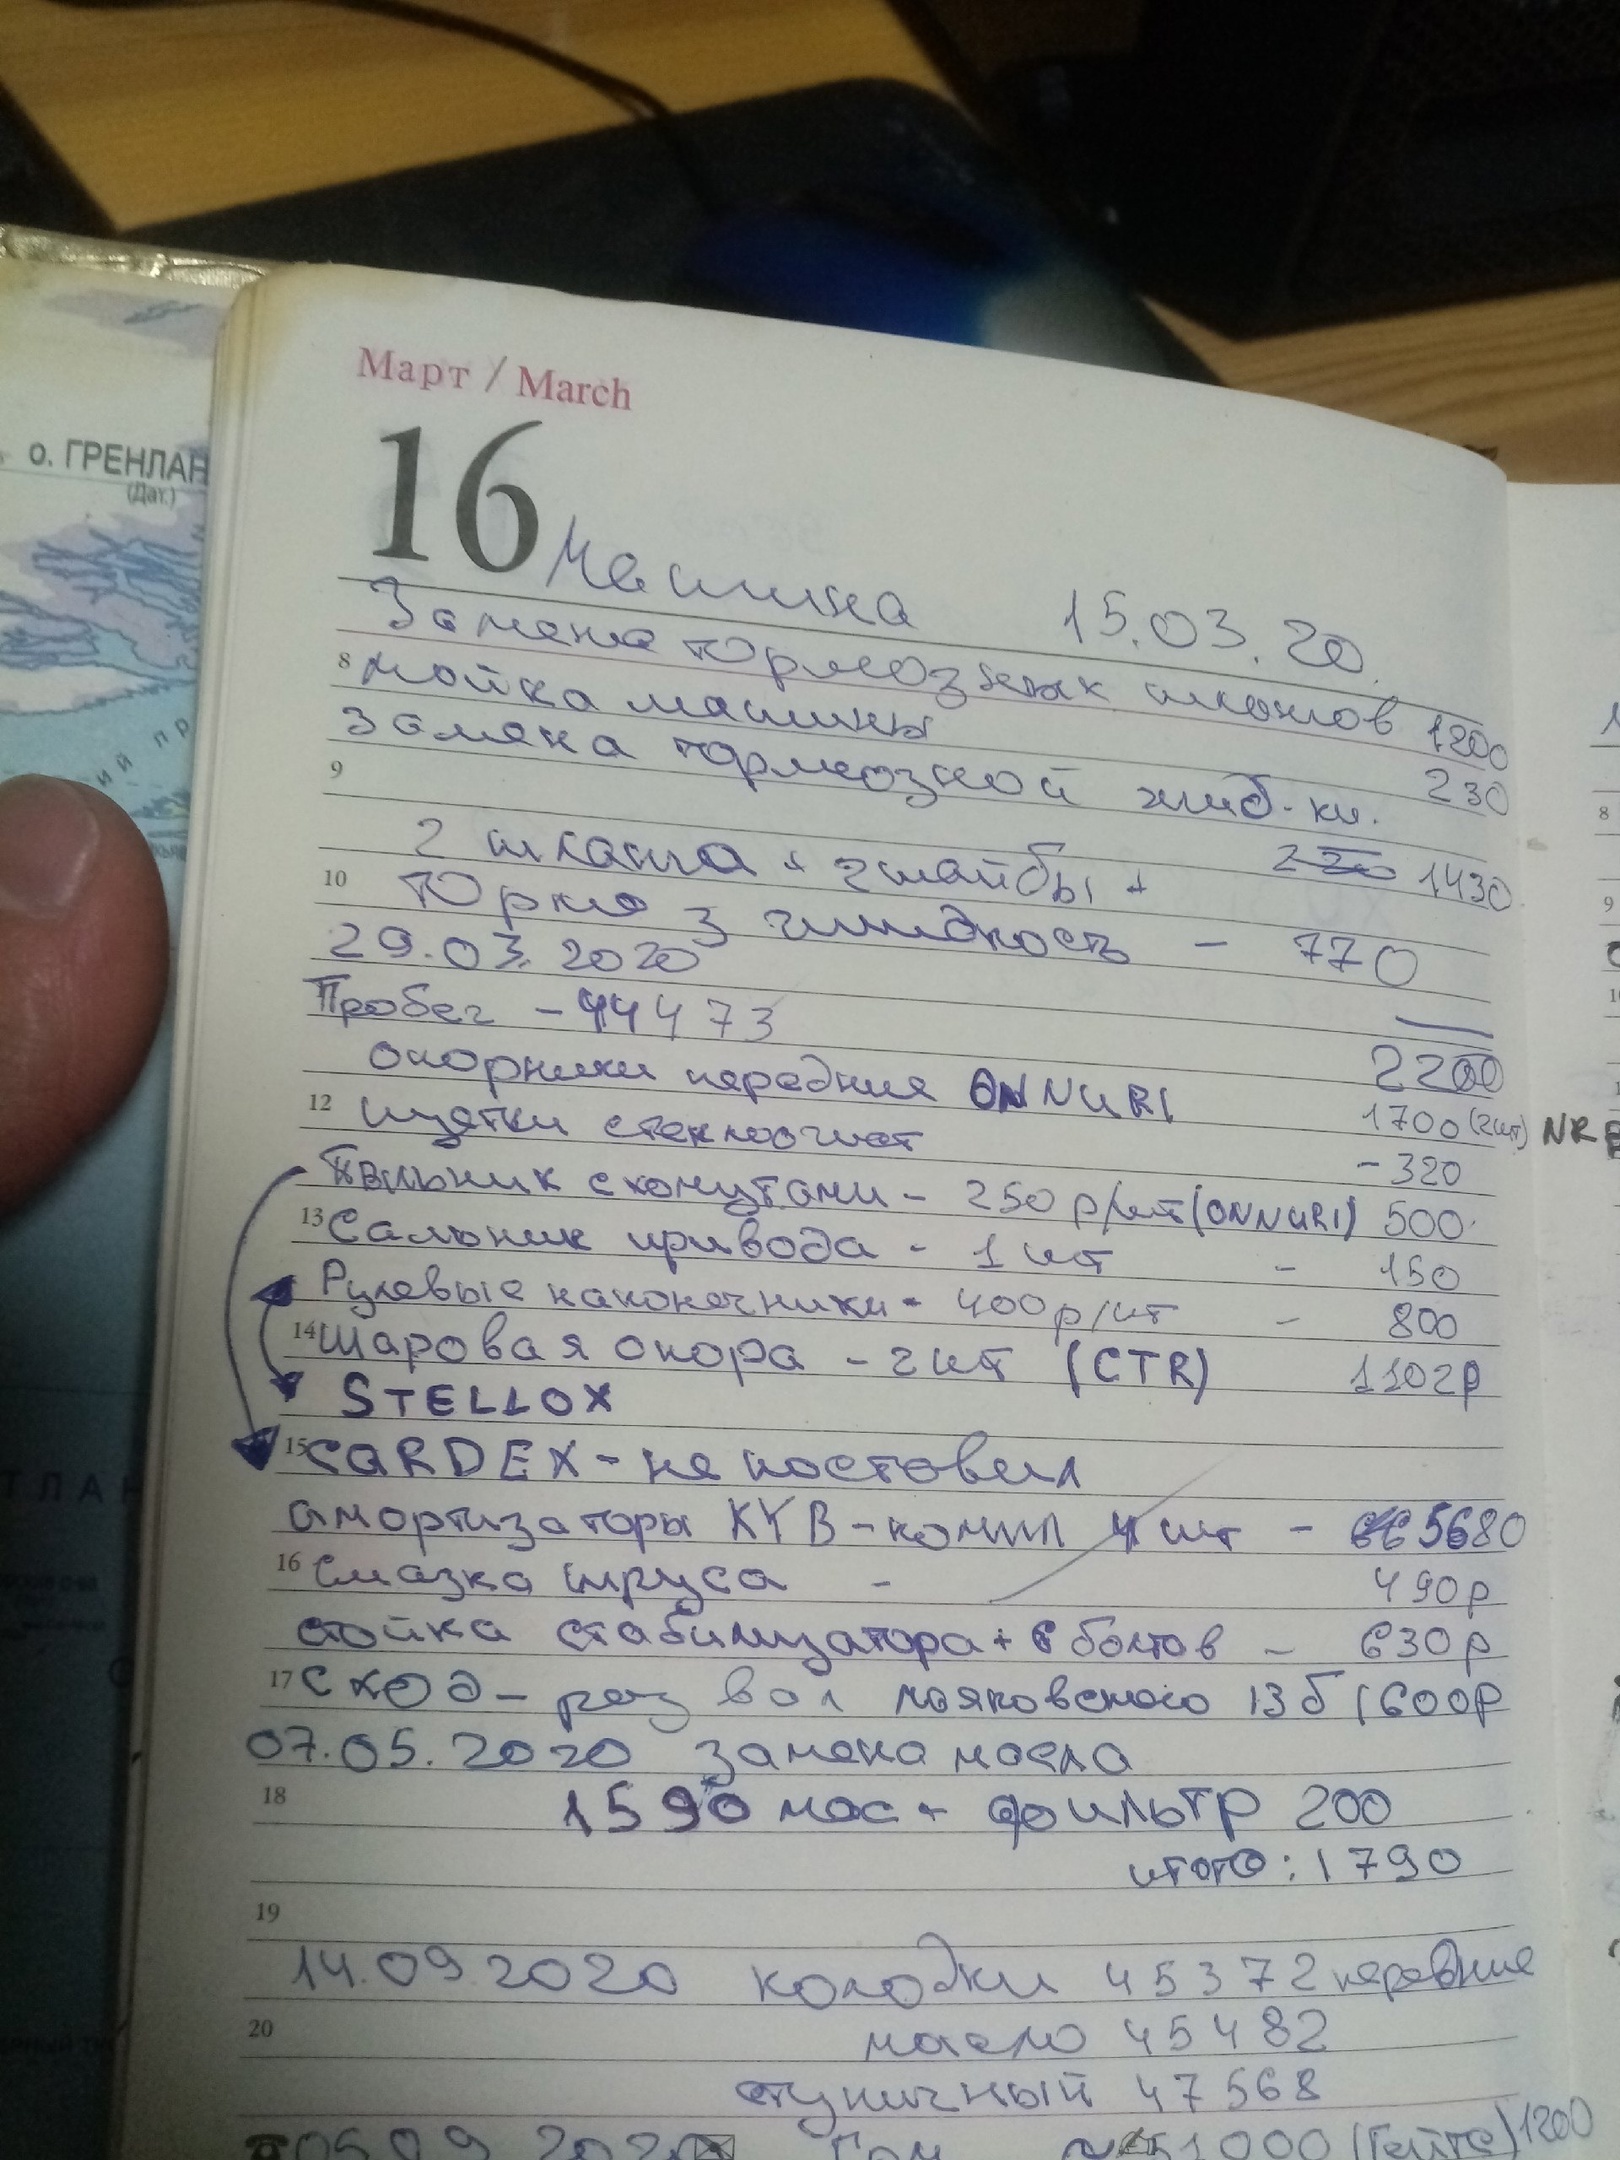 о. ГРЕНЛАН
(Дат.)
ий пр
Март / March
16 Машина 15.03.20.
Замена тормозных шлангов 1200
8 мойка машины 230
Замена тормозной жид-ки.
9 1430
2 шланга + 2 шайбы +
10 Тормоз жидкость - 770
29.03.2020
Пробег - 44473 2200
опорники передние ONNURI 1700 (2шт)
12 щетки стеклоочист - 320
Пыльник с хомутами - 250 р/шт (ONNURI) 500
13 Сальник привода - 1 шт - 150
Рулевые наконечники - 400 р/шт - 800
14 Шаровая опора - 2 шт (CTR) 1102р
STELLOX
15 CARDEX - не поставил
амортизаторы KYB - компл 4 шт - 5680
16 Смазка шруса - 490р
стойка стабилизатора + 6 болтов - 630р
17 Сход - развал маяковского 13б 1600р
07.05.2020 замена масла
18 1590 мас + фильтр 200
итого: 1790
19
14.09.2020 колодки 45372 передние
20 масло 45482
ступичный 47568
09 2020 51000 (Гейтс) 1200